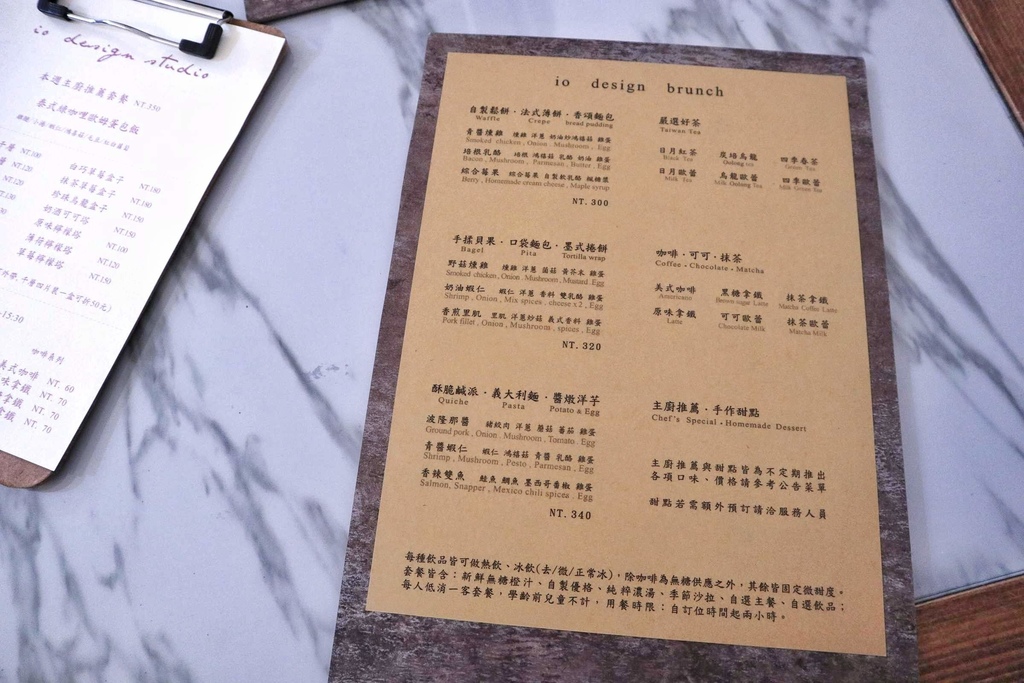 io design studio
本週主廚推薦套餐 NT.350
泰式綠咖哩歐姆蛋包飯
白巧草莓盒子 NT.180
抹茶草莓盒子 NT.180
珍珠烏龍盒子 NT.150
奶酒可可塔 NT.150
原味檸檬塔 NT.100
薄荷檸檬塔 NT.120
草莓檸檬塔 NT.150
NT.100
NT.120
-15:30
咖啡系列
美式咖啡 NT. 60
味拿鐵 NT. 70
拿鐵 NT. 70
拿鐵 NT. 70
io design brunch
自製鬆餅・法式薄餅・香頌麵包
Waffle Crepe bread pudding
青醬燻雞 燻雞 洋蔥 奶油炒鴻禧菇 雞蛋
Smoked chicken , Onion , Mushroom , Egg
培根乳酪 培根 鴻禧菇 乳酪 奶油 雞蛋
Bacon , Mushroom , Parmesan , Butter , Egg
綜合莓果 綜合莓果 自製軟乳酪 楓糖漿
Berry , Homemade cream cheese , Maple syrup
NT. 300
手揉貝果・口袋麵包・墨式捲餅
Bagel Pita Tortilla wrap
野菇燻雞 燻雞 洋蔥 菌菇 黃芥末 雞蛋
Smoked chicken , Onion , Mushroom , Mustard , Egg
奶油蝦仁 蝦仁 洋蔥 香料 雙乳酪 雞蛋
Shrimp , Onion , Mix spices , cheese x 2 , Egg
香煎里肌 里肌 洋蔥炒菇 義式香料 雞蛋
Pork fillet , Onion , Mushroom , spices , Egg
NT. 320
酥脆鹹派・義大利麵・醬燉洋芋
Quiche Pasta Potato & Egg
波隆那醬 豬絞肉 洋蔥 蘑菇 蕃茄 雞蛋
Ground pork , Onion , Mushroom , Tomato , Egg
青醬蝦仁 蝦仁 鴻禧菇 青醬 乳酪 雞蛋
Shrimp , Mushroom , Pesto , Parmesan , Egg
香辣雙魚 鮭魚 鯛魚 墨西哥番椒 雞蛋
Salmon, Snapper , Mexico chili spices , Egg
NT. 340
嚴選好茶
Taiwan Tea
日月紅茶 炭焙烏龍 四季春茶
Black Tea Oolong tea Green Tea
日月歐蕾 烏龍歐蕾 四季歐蕾
Milk Tea Milk Oolong Tea Milk Green Tea
咖啡・可可・抹茶
Coffee・Chocolate・Matcha
美式咖啡 黑糖拿鐵 抹茶拿鐵
Americano Brown sugar Latte Matcha Coffee Latte
原味拿鐵 可可歐蕾 抹茶歐蕾
Latte Chocolate Milk Matcha Milk
主廚推薦・手作甜點
Chef's Special・Homemade Dessert
主廚推薦與甜點皆為不定期推出
各項口味、價格請參考公告菜單
甜點若需額外預訂請洽服務人員
每種飲品皆可做熱飲、冰飲(去/微/正常冰)，除咖啡為無糖供應之外，其餘皆固定微甜度。
套餐皆含：新鮮無糖橙汁、自製優格、純粹濃湯、季節沙拉、自選主餐、自選飲品；
每人低消一客套餐，學齡前兒童不計，用餐時限：自訂位時間起兩小時。